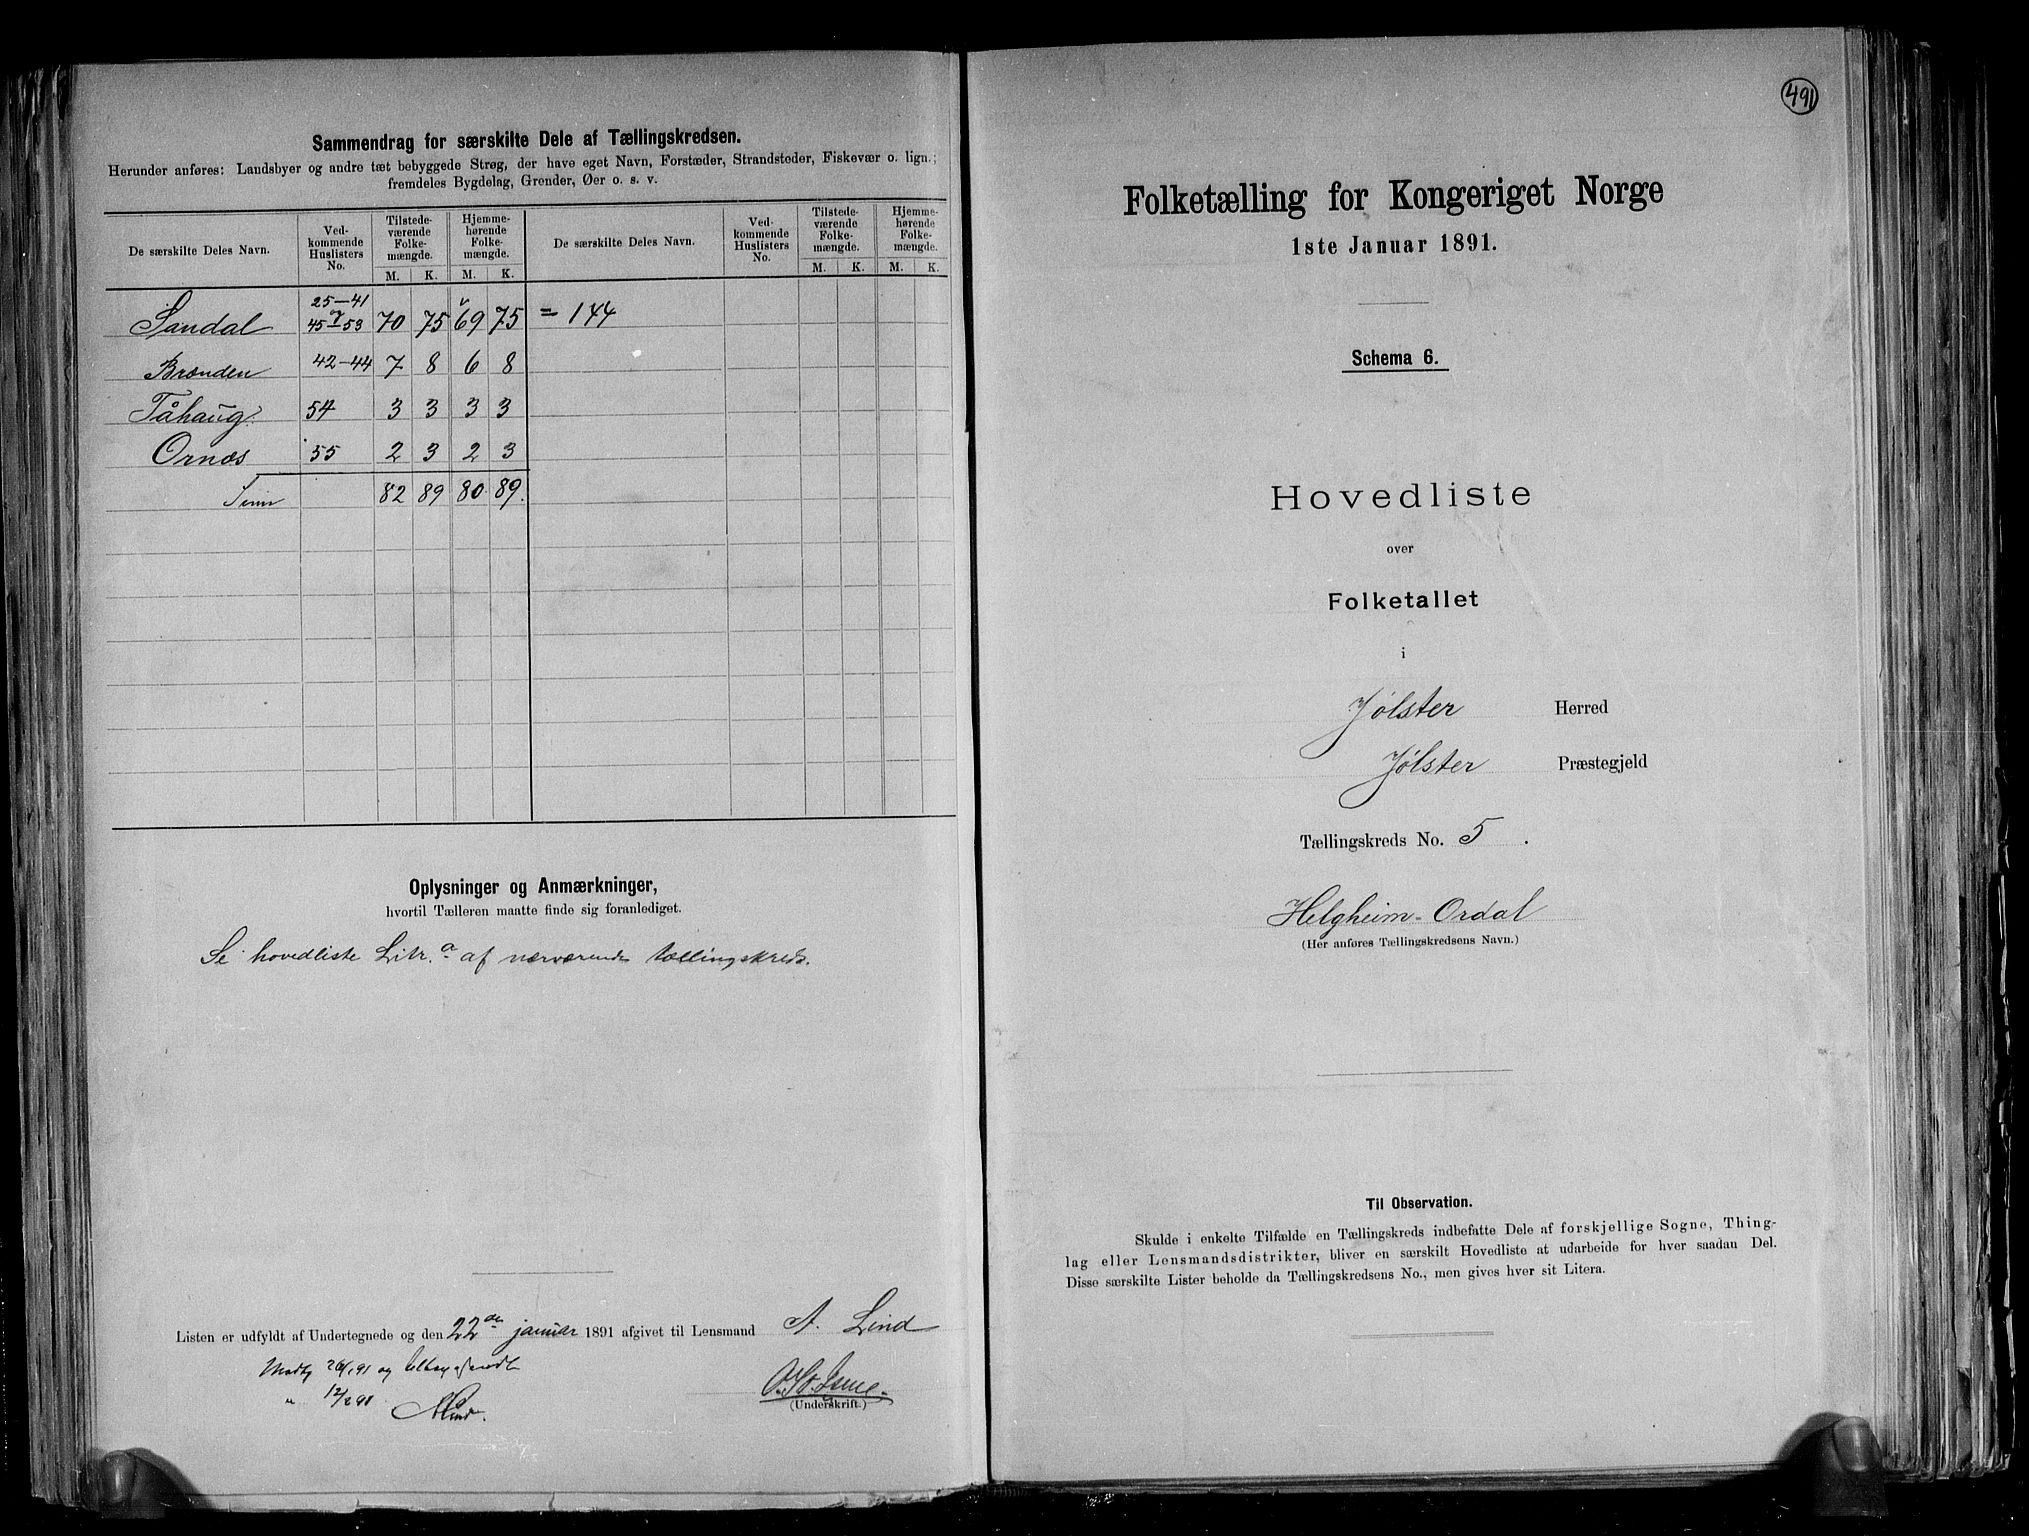 Sammendrag for særskilte Dele af Tællingskredsen.
Herunder anføres: Landsbyer og andre tæt bebyggede Strøg, der have eget Navn, Forstæder, Strandsteder, Fiskevær o. lign.;
fremdeles Bygdelag, Grender, Øer o. s. v.
De særskilte Deles Navn. Ved-kommende Huslisters No. Tilstede-værende Folke-mængde. Hjemme-hørende Folke-mængde. De særskilte Deles Navn. Ved-kommende Huslisters No. Tilstede-værende Folke-mængde. Hjemme-hørende Folke-mængde.
M. K. M. K. M. K. M. K.
25—41
Sandal 45—53 70 75 69 75 = 144
Brænden 42—44 7 8 6 8
Tåhaug. 54 3 3 3 3
Ornæs 55 2 3 2 3
82 89 80 89.
Oplysninger og Anmærkninger,
hvortil Tælleren maatte finde sig foranlediget.
Se hovedliste Litr. a af nærværende tællingskreds.
Listen er udfyldt af Undertegnede og den 22de januar 1891 afgivet til Lensmand A. Lind
26/1 91 og
" 12/2 91
A Lind.
(Underskrift.)
491
Folketælling for Kongeriget Norge
1ste Januar 1891.
Schema 6.
Hovedliste
over
Folketallet
i
Jølster Herred
Jølster Præstegjeld
Tællingskreds No. 5.
Helgheim-Ordal
(Her anføres Tællingskredsens Navn.)
Til Observation.
Skulde i enkelte Tilfælde en Tællingskreds indbefatte Dele af forskjellige Sogne, Thing-
lag eller Lensmandsdistrikter, bliver en særskilt Hovedliste at udarbeide for hver saadan Del.
Disse særskilte Lister beholde da Tællingskredsens No., men gives hver sit Litera.